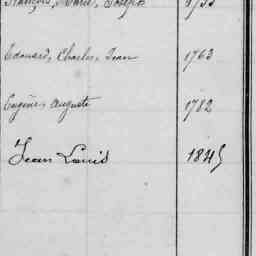 François, Marie, Joseph 1755
Edouard, Charles, Jean 1763
Eugène, Auguste 1782
Jean Louis 1845